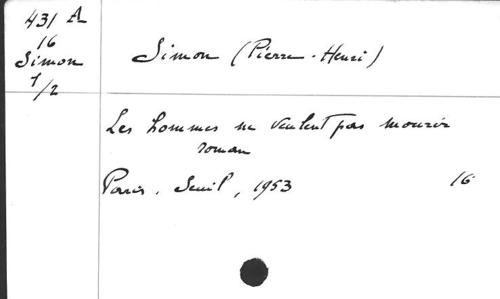 431 A
16
Simon
1/2
Simon (Pierre-Henri)
Les hommes ne veulent pas mourir
roman
Paris, Seuil, 1953 16